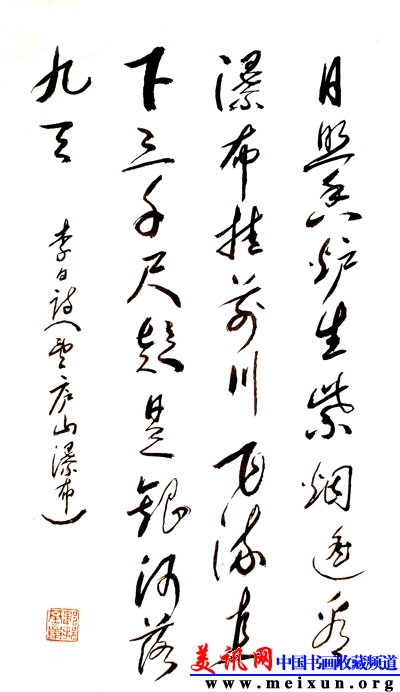 日照香炉生紫烟遥看
瀑布挂前川飞流直
下三千尺疑是银河落
九天
李白诗《望庐山瀑布》
美讯网 中国书画收藏频道
www.meixun.org